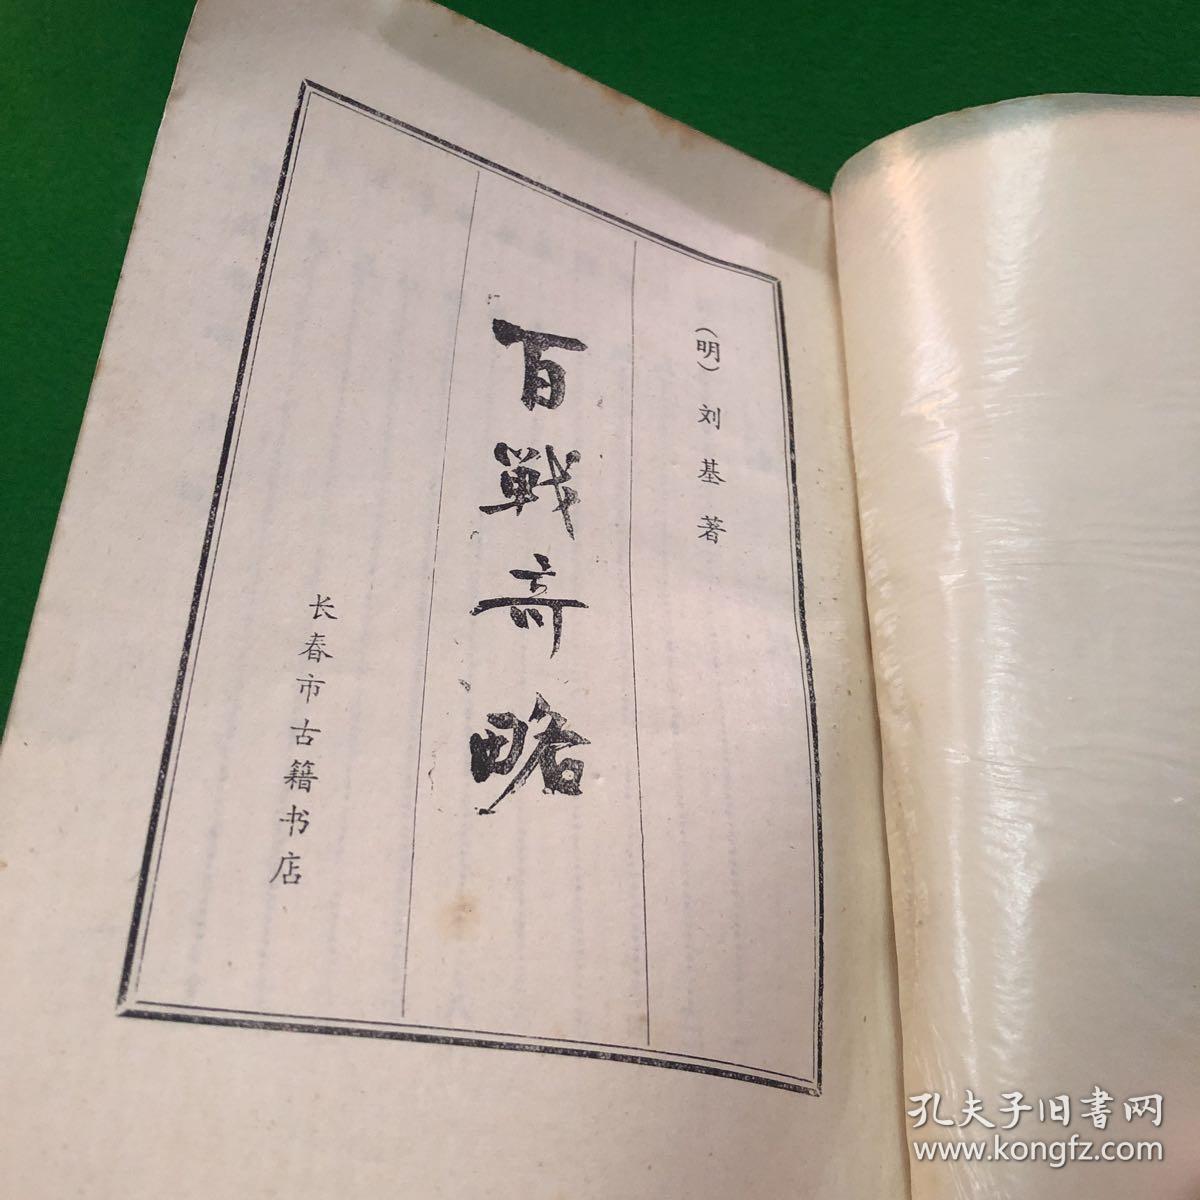 （明）刘基著
百戰奇略
长春市古籍书店
孔夫子旧書网
www.kongfz.com